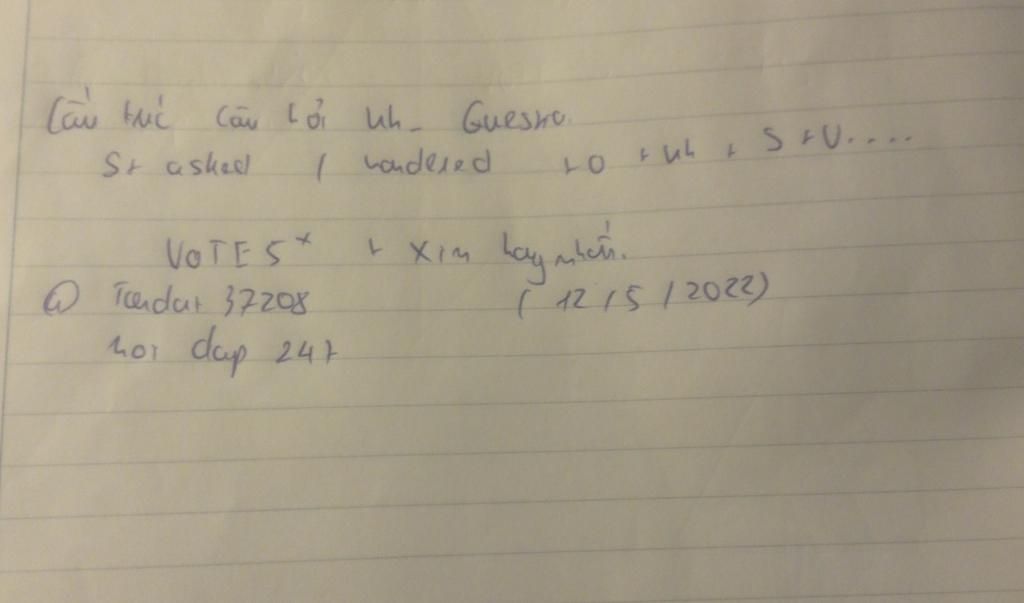 Cấu trúc câu hỏi Wh- Questio.
S + asked / wondered + O + Wh + S + V....
VOTE 5* + xin hay nhất.
@ Tiendat 37208 ( 12 / 5 / 2022)
hoi dap 247